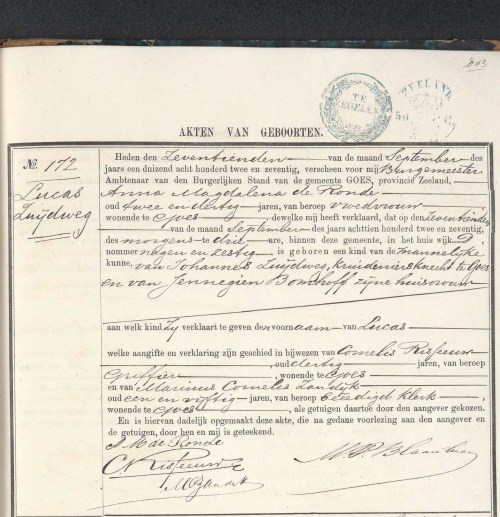 203
TE
ZEGELEN
ZEELAND
50
AKTEN VAN GEBOORTEN.
No. 172
Lucas
Zuijdweg
Heden den Zeventienden van de maand September des
jaars een duizend acht honderd twee en zeventig, verscheen voor mij Burgemeester
Ambtenaar van den Burgerlijken Stand van de gemeente GOES, provincie Zeeland,
Anna Magdalena de Ronde
oud twee en dertig jaren, van beroep vroedvrouw
wonende te Goes, dewelke mij heeft verklaard, dat op den Zeventienden
van de maand September des jaars achttien honderd twee en zeventig,
des morgens te drie ure, binnen deze gemeente, in het huis wijk D
nommer negen en zestig is geboren een kind van de mannelijke
kunne, van Johannes Zuijdweg, kruideniersknecht te Goes
en van Jennegien Bomhoff zijne huisvrouw
aan welk kind zij verklaart te geven den voornaam van Lucas
welke aangifte en verklaring zijn geschied in bijwezen van Cornelis Risseeuw
oud dertig jaren, van beroep
Griffier, wonende te Goes
en van Marinus Cornelis Zandijk
oud een en vijftig jaren, van beroep beëedigd klerk
wonende te Goes, als getuigen daartoe door den aangever gekozen.
En is hiervan dadelijk opgemaakt deze akte, die na gedane voorlezing aan den aangever en
de getuigen, door hen en mij is geteekend.
A M de Ronde
C. Risseeuw
M C Zandijk